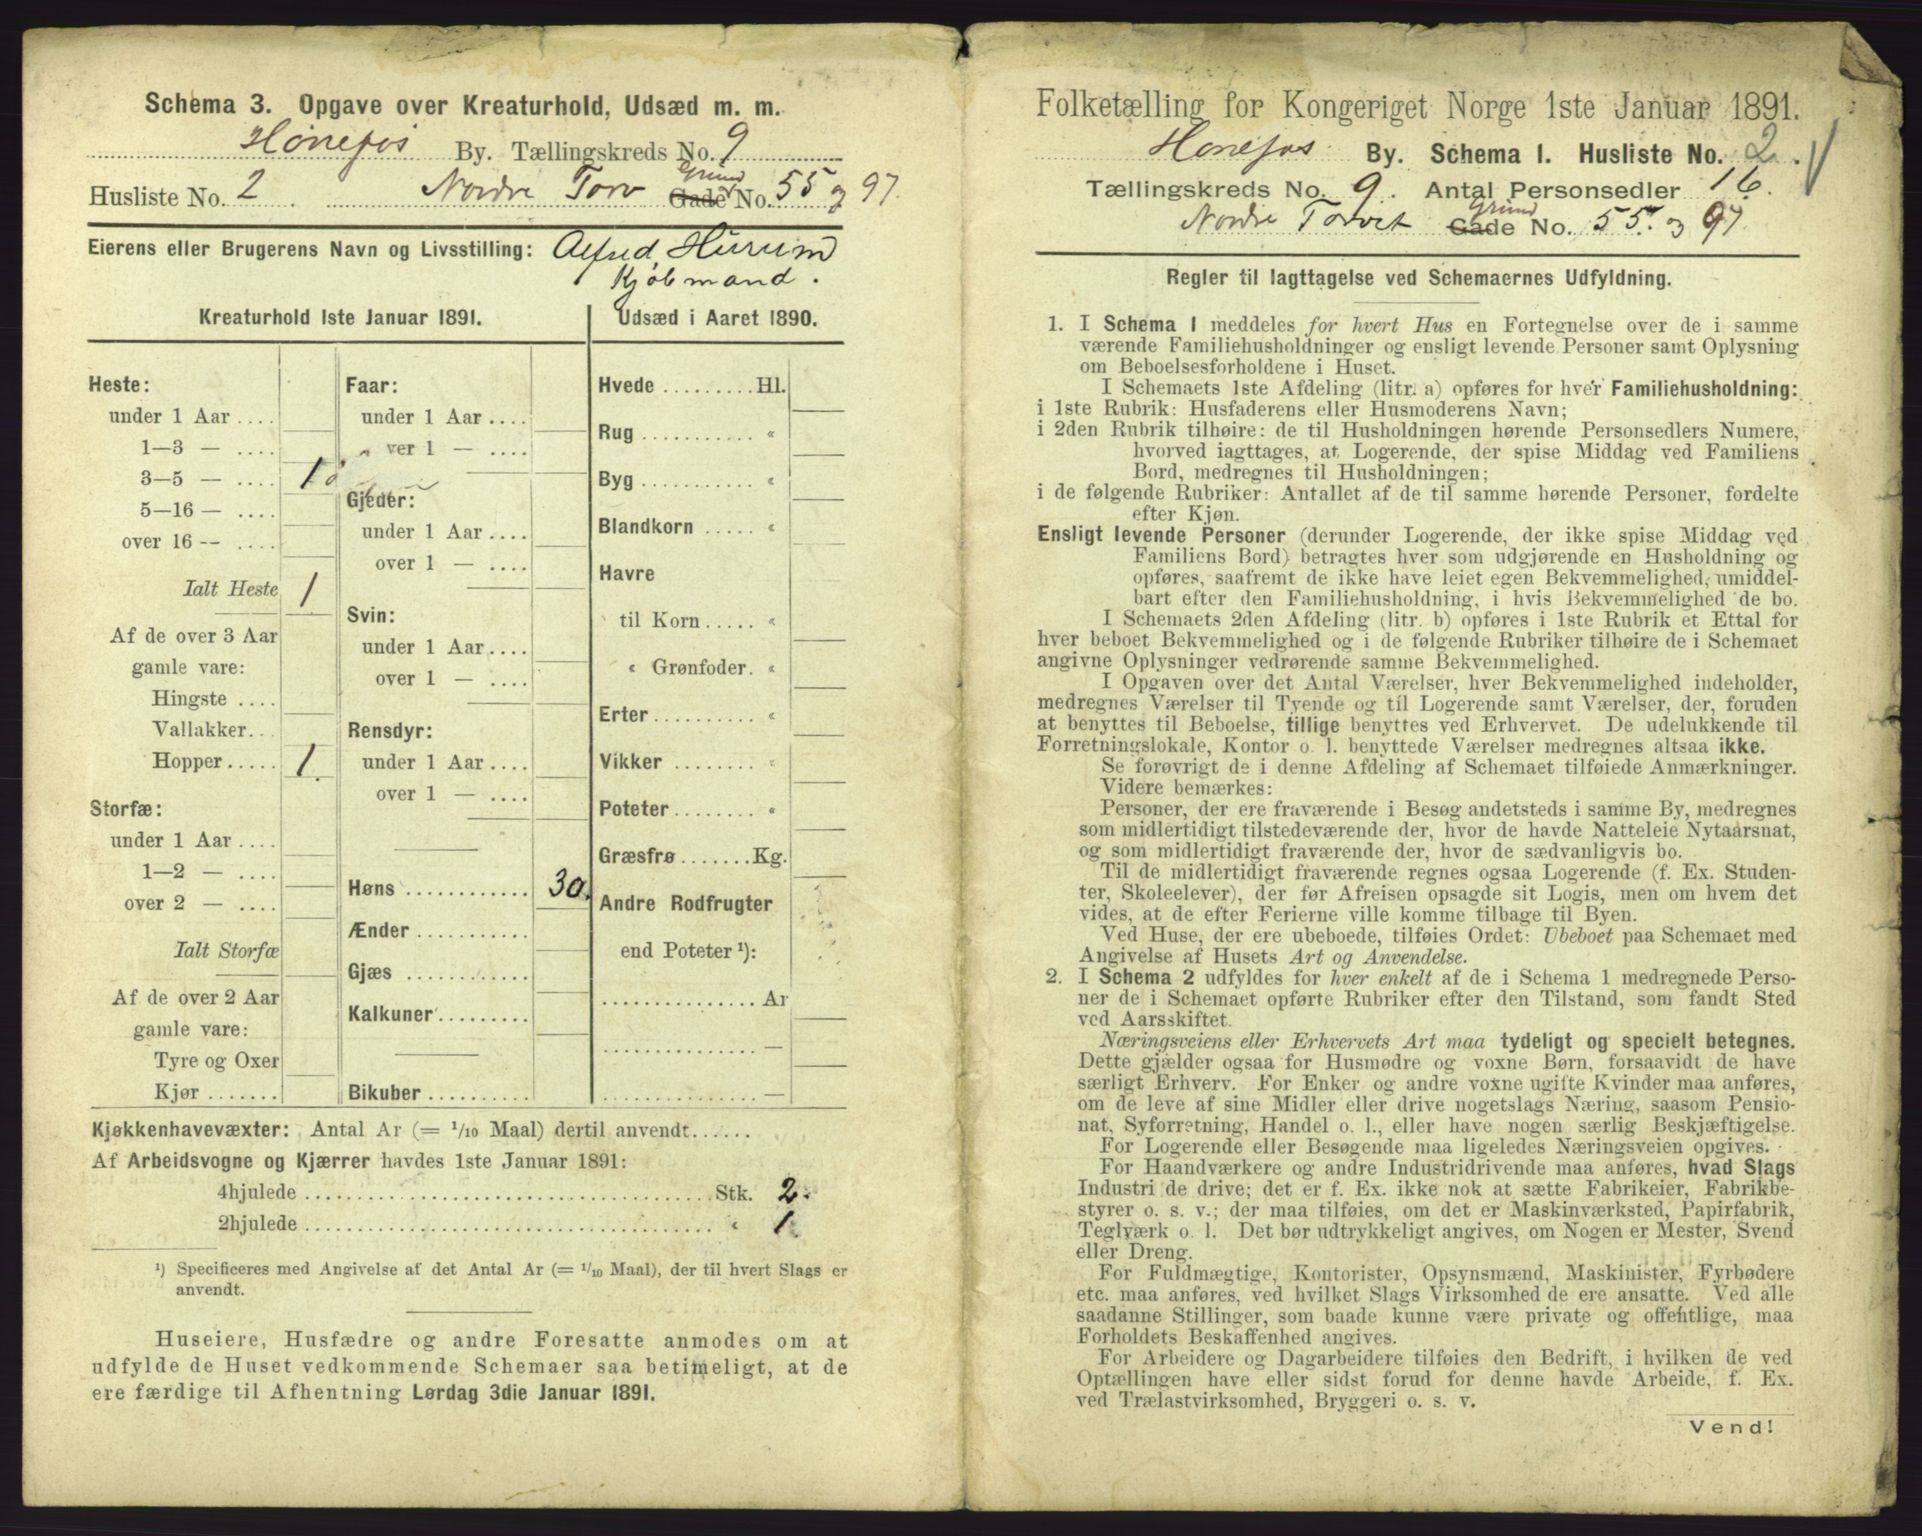 Schema 3. Opgave over Kreaturhold, Udsæd m. m.
Hønefos By. Tællingskreds No. 9
Husliste No. 2 Nordre Torv Gade Grund No. 55 og 97.
Eierens eller Brugerens Navn og Livsstilling: Alfred Hurum
Kjøbmand.
Kreaturhold 1ste Januar 1891.
Heste:
under 1 Aar ....
1—3 — ....
3—5 — .... 1
5—16 — ....
over 16 — ....
Ialt Heste 1
Af de over 3 Aar
gamle vare:
Hingste ....
Vallakker...
Hopper..... 1.
Storfæ:
under 1 Aar ....
1—2 — ....
over 2 — ....
Ialt Storfæ
Af de over 2 Aar
gamle vare:
Tyre og Oxer
Kjør .......
Faar:
under 1 Aar ....
ver 1 — ....
Gjeder:
under 1 Aar ....
over 1 — ....
Svin:
under 1 Aar....
over 1 — ....
Rensdyr:
under 1 Aar....
over 1 — ....
Høns ............ 30.
Ænder ...........
Gjæs ............
Kalkuner.........
Bikuber..........
Udsæd i Aaret 1890.
Hvede .........Hl.
Rug ........... «
Byg ........... «
Blandkorn ..... «
Havre
til Korn..... «
« Grønfoder. «
Erter.......... «
Vikker ........ «
Poteter........ «
Græsfrø.......Kg.
Andre Rodfrugter
end Poteter ¹):
...............Ar
...............—
...............—
Kjøkkenhavevæxter: Antal Ar (= 1/10 Maal) dertil anvendt......
Af Arbeidsvogne og Kjærrer havdes 1ste Januar 1891:
4hjulede .......................................Stk. 2.
2hjulede ....................................... « 1
¹) Specificeres med Angivelse af det Antal Ar (= 1/10 Maal), der til hvert Slags er
anvendt.
Huseiere, Husfædre og andre Foresatte anmodes om at
udfylde de Huset vedkommende Schemaer saa betimeligt, at de
ere færdige til Afhentning Lørdag 3die Januar 1891.
Folketælling for Kongeriget Norge 1ste Januar 1891.
Hønefos By. Schema 1. Husliste No. 2.
Tællingskreds No. 9. Antal Personsedler 16.
Nordre Torvet Gade Grund No. 55. og 97.
Regler til Iagttagelse ved Schemaernes Udfyldning.
1. I Schema 1 meddeles for hvert Hus en Fortegnelse over de i samme
værende Familiehusholdninger og ensligt levende Personer samt Oplysning
om Beboelsesforholdene i Huset.
I Schemaets 1ste Afdeling (litr. a) opføres for hver Familiehusholdning:
i 1ste Rubrik: Husfaderens eller Husmoderens Navn;
i 2den Rubrik tilhøire: de til Husholdningen hørende Personsedlers Numere,
hvorved iagttages, at Logerende, der spise Middag ved Familiens
Bord, medregnes til Husholdningen;
i de følgende Rubriker: Antallet af de til samme hørende Personer, fordelte
efter Kjøn.
Ensligt levende Personer (derunder Logerende, der ikke spise Middag ved
Familiens Bord) betragtes hver som udgjørende en Husholdning og
opføres, saafremt de ikke have leiet egen Bekvemmelighed, umiddel-
bart efter den Familiehusholdning, i hvis Bekvemmelighed de bo.
I Schemaets 2den Afdeling (litr. b) opføres i 1ste Rubrik et Ettal for
hver beboet Bekvemmelighed og i de følgende Rubriker tilhøire de i Schemaet
angivne Oplysninger vedrørende samme Bekvemmelighed.
I Opgaven over det Antal Værelser, hver Bekvemmelighed indeholder,
medregnes Værelser til Tyende og til Logerende samt Værelser, der, foruden
at benyttes til Beboelse, tillige benyttes ved Erhvervet. De udelukkende til
Forretningslokale, Kontor o. l. benyttede Værelser medregnes altsaa ikke.
Se forøvrigt de i denne Afdeling af Schemaet tilføiede Anmærkninger.
Videre bemærkes:
Personer, der ere fraværende i Besøg andetsteds i samme By, medregnes
som midlertidigt tilstedeværende der, hvor de havde Natteleie Nytaarsnat,
og som midlertidigt fraværende der, hvor de sædvanligvis bo.
Til de midlertidigt fraværende regnes ogsaa Logerende (f. Ex. Studen-
ter, Skoleelever), der før Afreisen opsagde sit Logis, men om hvem det
vides, at de efter Ferierne ville komme tilbage til Byen.
Ved Huse, der ere ubeboede, tilføies Ordet: Ubeboet paa Schemaet med
Angivelse af Husets Art og Anvendelse.
2. I Schema 2 udfyldes for hver enkelt af de i Schema 1 medregnede Perso-
ner de i Schemaet opførte Rubriker efter den Tilstand, som fandt Sted
ved Aarsskiftet.
Næringsveiens eller Erhvervets Art maa tydeligt og specielt betegnes.
Dette gjælder ogsaa for Husmødre og voxne Børn, forsaavidt de have
særligt Erhverv. For Enker og andre voxne ugifte Kvinder maa anføres,
om de leve af sine Midler eller drive nogetslags Næring, saasom Pensio-
nat, Syforretning, Handel o. l., eller have nogen særlig Beskjæftigelse.
For Logerende eller Besøgende maa ligeledes Næringsveien opgives.
For Haandværkere og andre Industridrivende maa anføres, hvad Slags
Industri de drive; det er f. Ex. ikke nok at sætte Fabrikeier, Fabrikbe-
styrer o. s. v.; der maa tilføies, om det er Maskinværksted, Papirfabrik,
Teglværk o. l. Det bør udtrykkeligt angives, om Nogen er Mester, Svend
eller Dreng.
For Fuldmægtige, Kontorister, Opsynsmænd, Maskinister, Fyrbødere
etc. maa anføres, ved hvilket Slags Virksomhed de ere ansatte. Ved alle
saadanne Stillinger, som baade kunne være private og offentlige, maa
Forholdets Beskaffenhed angives.
For Arbeidere og Dagarbeidere tilføies den Bedrift, i hvilken de ved
Optællingen have eller sidst forud for denne havde Arbeide, f. Ex.
ved Trælastvirksomhed, Bryggeri o. s. v.
Vend!